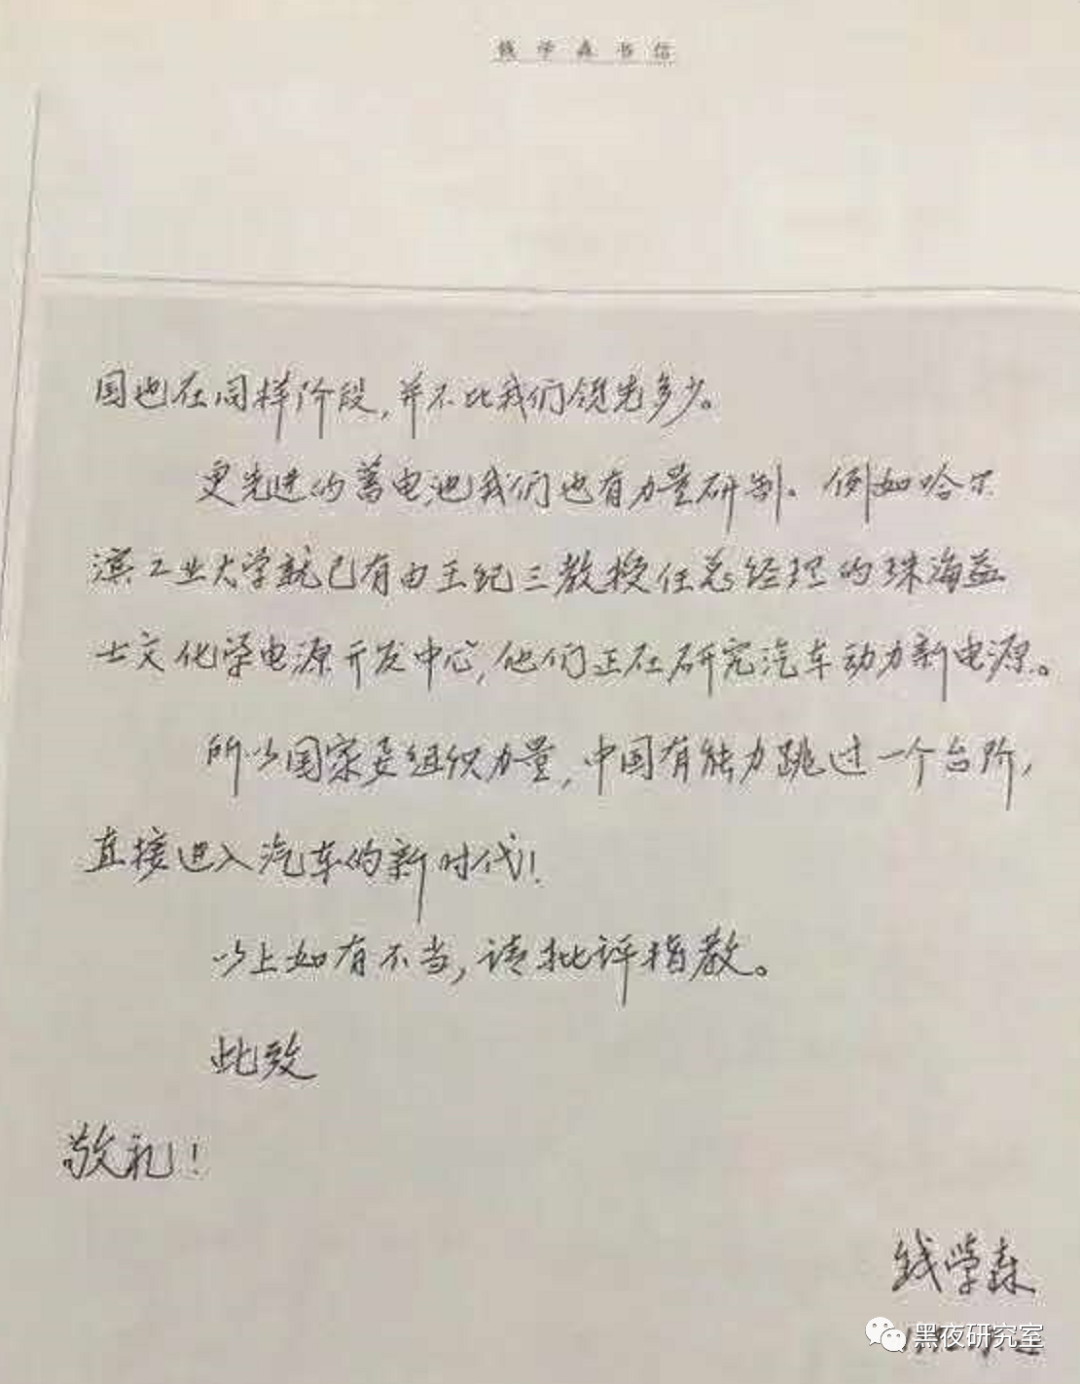 钱学森书信
国也在同样阶段，并不比我们领先多少。
更先进的蓄电池我们也有力量研制。例如哈尔
滨工业大学就已有由王纪三教授任总经理的珠海益
士文化学电源开发中心，他们正在研究汽车动力新电源。
所以国家要组织力量，中国有能力跳过一个台阶，
直接进入汽车的新时代！
以上如有不当，请批评指教。
此致
敬礼！
钱学森
黑夜研究室